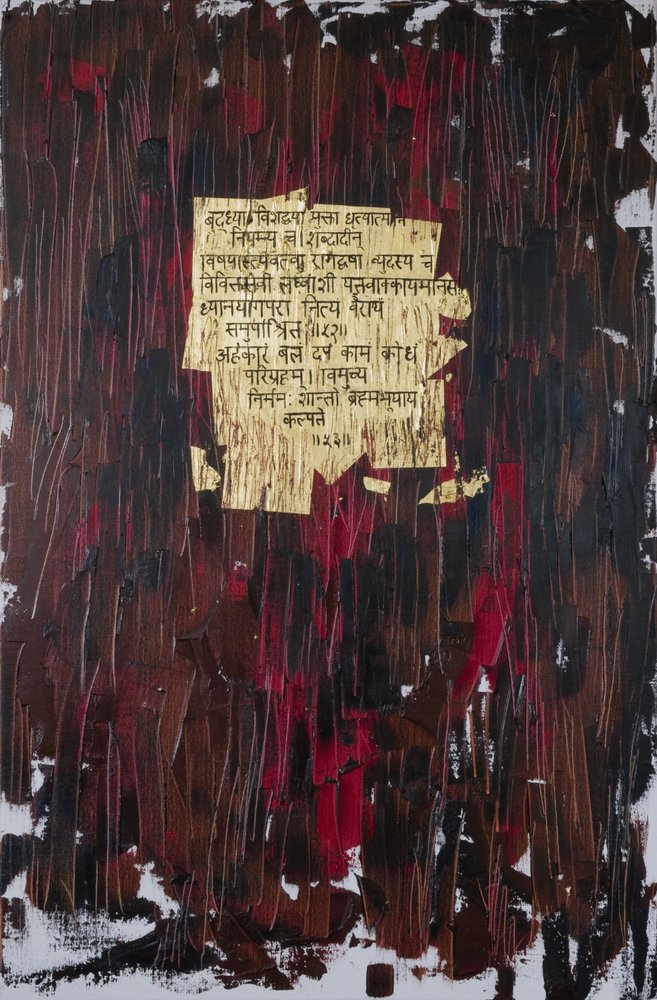 बुद्ध्या विशुद्धया युक्तो धृत्यात्मानं
नियम्य च। शब्दादीन्
विषयांस्त्यक्त्वा रागद्वेषौ व्युदस्य च
विविक्तसेवी लघ्वाशी यतवाक्कायमानस
ध्यानयोगपरो नित्यं वैराग्यं
समुपाश्रित ॥५२॥
अहंकारं बलं दर्पं कामं क्रोधं
परिग्रहम्। विमुच्य
निर्ममः शान्तो ब्रह्मभूयाय
कल्पते
॥५३॥